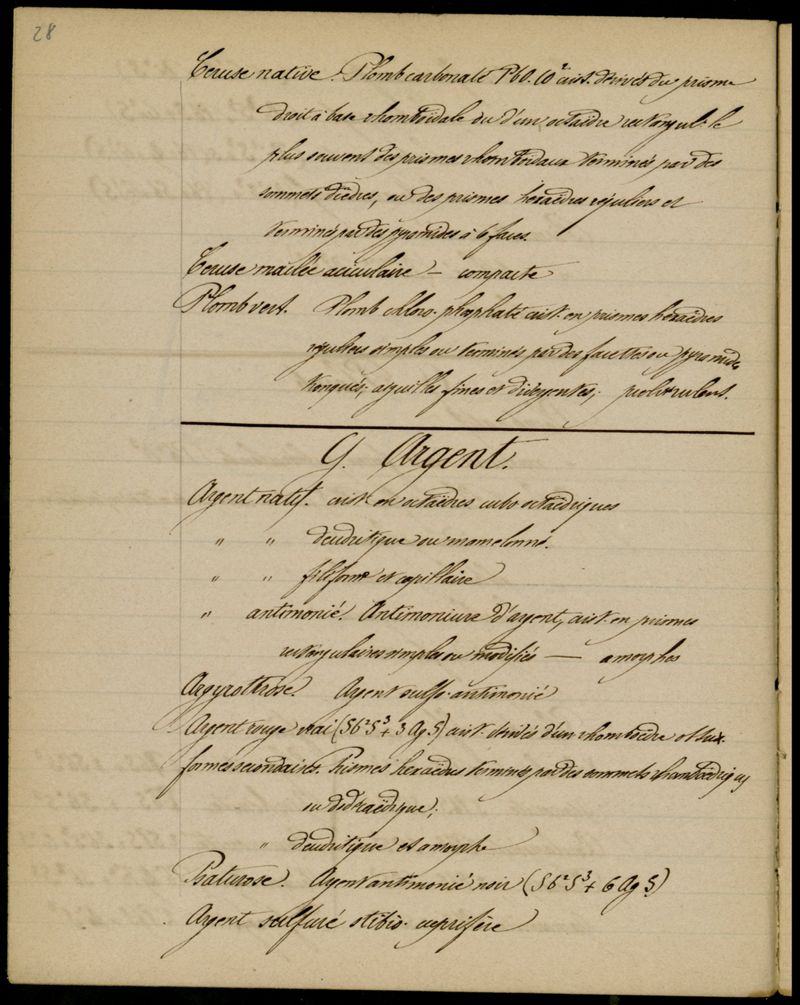 28
Céruse native. Plomb carbonaté PbO.CO² crist. dérivés du prisme
droit à base rhomboïdale ou d'un octaèdre rectangul. le
plus souvent des prismes rhomboïdaux terminés par des
sommets dièdres, ou des prismes hexaèdres réguliers et
terminés par des pyramides à 6 faces.
Céruse maclée aciculaire — compacte
Plomb vert. Plomb chloro-phosphaté crist. en prismes hexaèdres
réguliers simples ou terminés par des facettes ou pyramides
tronquées; aiguilles fines et divergentes;
G. Argent.
Argent natif. crist. en octaèdres cubo octaèdriques
" " dendritique ou mamelonné.
" " filiforme et capillaire
" antimonié. Antimoniure d'argent, crist. en prismes
rectangulaires simples ou modifiés — amorphes
Argyrothrose. Argent sulfo-antimonié
Argent rouge vrai (Sb²S³ + 3 Ag S) crist. dérivés d'un rhomboèdre obtus.
formes secondaires. Prismes hexaèdres terminés par des sommets rhomboèdriques
ou dodécaèdrique;
" dendritique et amorphe
Psaturose. Argent antimonié noir (Sb²S³ + 6 Ag S)
Argent sulfuré stibio-cuprifère